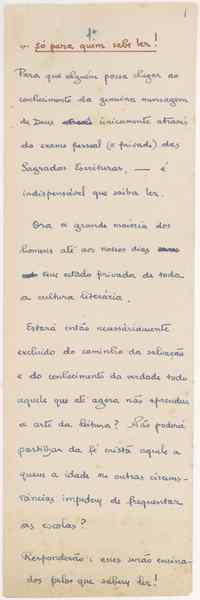 1
1º
— Só para quem sabe ler!
Para que alguém possa chegar ao
conhecimento da genuína mensagem
de Deus únicamente através
do exame pessoal (e privado) das
Sagradas Escrituras, — é
indispensável que saiba ler.
Ora a grande maioria dos
homens até aos nossos dias
tem estado privada de toda
a cultura literária.
Estará então necessàriamente
excluído do caminho da salvação
e do conhecimento da verdade todo
aquele que até agora não aprendeu
a arte da leitura? Não poderá
partilhar da fé cristã aquele a
quem a idade ou outras circuns-
tâncias impedem de frequentar
as escolas?
Responderão: esses serão ensina-
dos pelos que sabem ler!